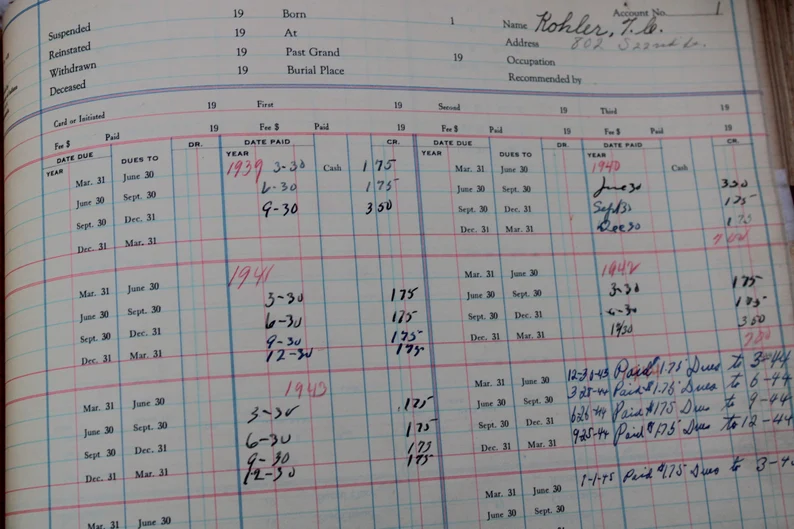 Suspended 19 Born 1 Account No. 1
Reinstated 19 At Name Kohler, T. C.
Withdrawn 19 Past Grand 19 Address 802
Deceased 19 Burial Place Occupation
Recommended by
Card or Initiated 19 First 19 Second 19 Third 19
Fee $ Paid 19 Fee $ Paid 19 Fee $ Paid 19 Fee $ Paid 19
DATE DUE DUES TO DR. DATE PAID CR. DATE DUE DUES TO DR. DATE PAID CR.
YEAR YEAR YEAR YEAR
Mar. 31 June 30 1939 3-30 Cash 1 75 Mar. 31 June 30 1940 Cash
June 30 Sept. 30 6-30 1 75 June 30 Sept. 30 June 30 3 50
Sept. 30 Dec. 31 9-30 3 50 Sept. 30 Dec. 31 Sept 30 1 75
Dec. 31 Mar. 31 Dec. 31 Mar. 31 Dec 30 1 75
7 00
1941 1942
Mar. 31 June 30 3-30 1 75 Mar. 31 June 30 3-30 1 75
June 30 Sept. 30 6-30 1 75 June 30 Sept. 30 6-30 1 75
Sept. 30 Dec. 31 9-30 1 75 Sept. 30 Dec. 31 3 50
Dec. 31 Mar. 31 12-30 1 75 Dec. 31 Mar. 31 7 00
1943
Mar. 31 June 30 3-30 1 75 Mar. 31 June 30 Paid $1.75 Dues to 3-44
June 30 Sept. 30 6-30 1 75 June 30 Sept. 30 3-25-44 Paid $1.75 Dues to 6-44
Sept. 30 Dec. 31 9-30 1 75 Sept. 30 Dec. 31 6-26-44 Paid $1.75 Dues to 9-44
Dec. 31 Mar. 31 12-30 1 75 Dec. 31 Mar. 31 9-25-44 Paid $1.75 Dues to 12-44
Mar. 31 June 30 Mar. 31 June 30 1-1-45 Paid $1.75 Dues to 3-4
June 30 Sept. 30